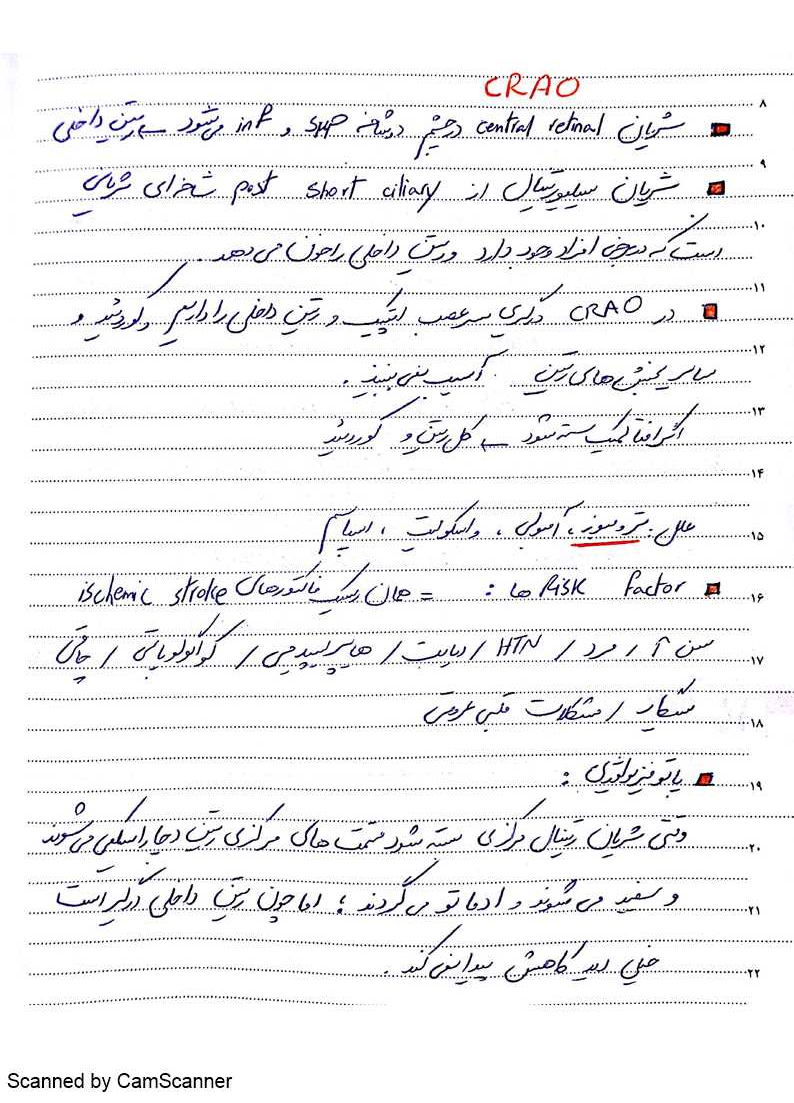 CRAO
۸
شریان central retinal در چشم دوشاخه sup و inf می‌شود ← رتین داخلی
۹
شریان سیلیورتینال از post short ciliary شاخه‌ای شریانی
۱۰
است که در برخی افراد وجود دارد و رتین داخلی را خون می‌دهد.
۱۱
در CRAO درگیری سر عصب اپتیک و رتین داخلی را داریم و کوروئید و
۱۲
سایر بخش‌های رتین آسیب نمی‌بینید.
۱۳
اگر افتالمیک بسته شود ← کل رتین و کوروئید
۱۴
علل: ترومبوز، آمبولی، واسکولیت، اسپاسم
۱۵
Risk factor ها: = همان ریسک فاکتورهای ischemic stroke
۱۶
سن ↑ / مرد / HTN / دیابت / هایپرلیپیدمی / کواگولوپاتی / چاقی
۱۷
سیگار / مشکلات قلبی عروقی
۱۸
پاتوفیزیولوژی:
۱۹
وقتی شریان رتینال مرکزی بسته شود قسمت های مرکزی رتین دچار ایسکمی می‌شوند
۲۰
و سفید می شوند و ادماتو می‌گردند؛ اما چون رتین داخلی درگیر است
۲۱
خیلی دید کاهش پیدا نمی‌کند.
۲۲
Scanned by CamScanner